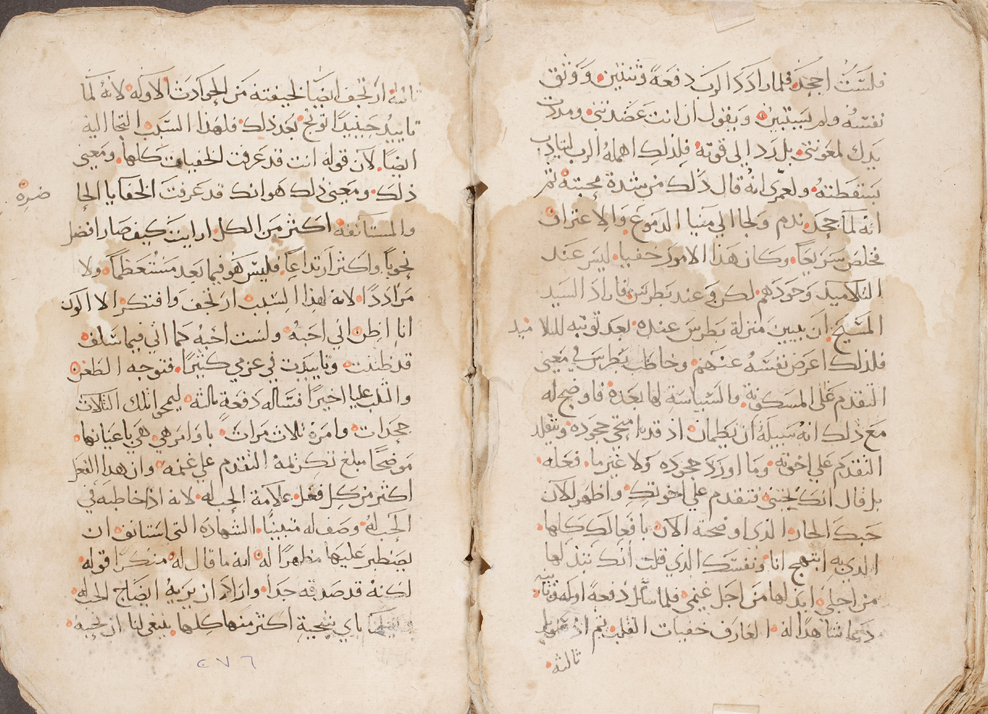 فلست اجحد فلما ردد الرب دفعة وثنتين ووثق
نفسه ولم يستبين ويقول ان انت عضدتني ومددت
يدك لمعونتي بل ردد الى قوته فلذلك اهمله الرب
بسقطته ولعمري انه قال ذلك من شدة محبته ثم
انه لما جحد ندم ولجا الى مينا الدموع والاعتراف
فخلص سريعا وكان هذا الامر خفيا ليس عند
التلاميد وحدهم لكن وعند بطرس فاراد السيد
المسيح ان يبين منزلة بطرس عنده بعد توبته للتلاميد
فلذلك اعرض نفسه عنهم وخاطب بطرس في معنى
التقدم على المسكونة والسياسة لها بعده فاوضح له
مع ذلك انه سبيله ان يطمان اذ قد امتحى جحوده وتقلد
التقدم على اخوته وما اورد جحوده ولا عيره ما فعله
بل قال انك تحبني فتقدم على اخوتك واظهر الان
حبك الحار الذي اوضحته الان بافعالك كلها
الذي به ابتهج انا ونفسك الذي قلت انك تبذلها
من اجلي ابذلها من اجل غنمي فلما سأل دفعة اوله وثانية
دعا شاهدا له العارف خفيات القلب ثم اذ سئل
ثالثه
ثانيه ارتجف ايضا لخيفته من الحوادث الاوله لانه لما
تاييد حينيذا توبخ بعد ذلك فلهذا السبب التجا اليه
ايضا لان قوله انت قد عرفت الخفيات كلها ومعنى
ذلك ومعنى ذلك هو انك قد عرفت الخفايا الحا
ضره
والمستانفه اكثر من الكل ارايت كيف صار افضل
نحويا واكثر ارتداعا فليس هو فيما بعد مستعظما ولا
مراددا لانه لهذا السبب ارتجف وافتكر الا اكون
انا اظن اني احبه ولست احبه كما اني فيما سلف
قد ظننت وتاييدت في عزمي كثيرا فتوجه الطعن
والثلب عليا اخيرا فساله دفعة ثالثه ليمحي تلك الثلاث
جحدات وامره ثلاث مرات باوامر هي هي باعيانها
موضحا مبلغ تكرمة التقدم على غنمه وان هذا الفعل
اكثر من كل فعل علامة الحب له لانه اذ خاطبه في
الحب له وصف له مبينا الشهاده التي استانف ان
يصطبر عليها مظهرا له انه ما قال له منكرا قوله
لكنه قد صدقه جدا واراد ان يريه ايضاح الحب له
باي سجية اكثر منها كلها ينبغي لنا ان نحبه
٢٧٦